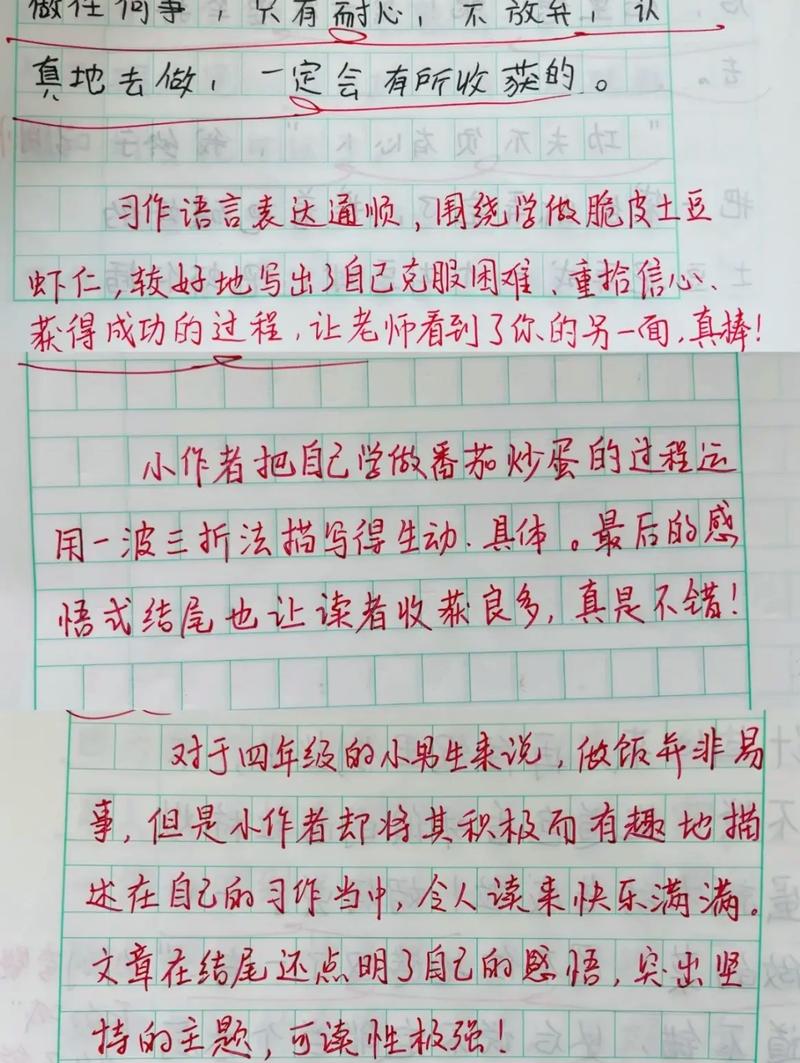 做任何事，只有耐心，不放弃，认
真地去做，一定会有所收获的。
习作语言表达通顺，围绕学做脆皮土豆
虾仁，较好地写出了自己克服困难、重拾信心、
获得成功的过程，让老师看到了你的另一面，真棒！
小作者把自己学做番茄炒蛋的过程运
用一波三折法描写得生动、具体。最后的感
悟式结尾也让读者收获良多，真是不错！
对于四年级的小男生来说，做饭并非易
事，但是小作者却将其积极而有趣地描
述在自己的习作当中，令人读来快乐满满。
文章在结尾还点明了自己的感悟，突出坚
持的主题，可读性极强！